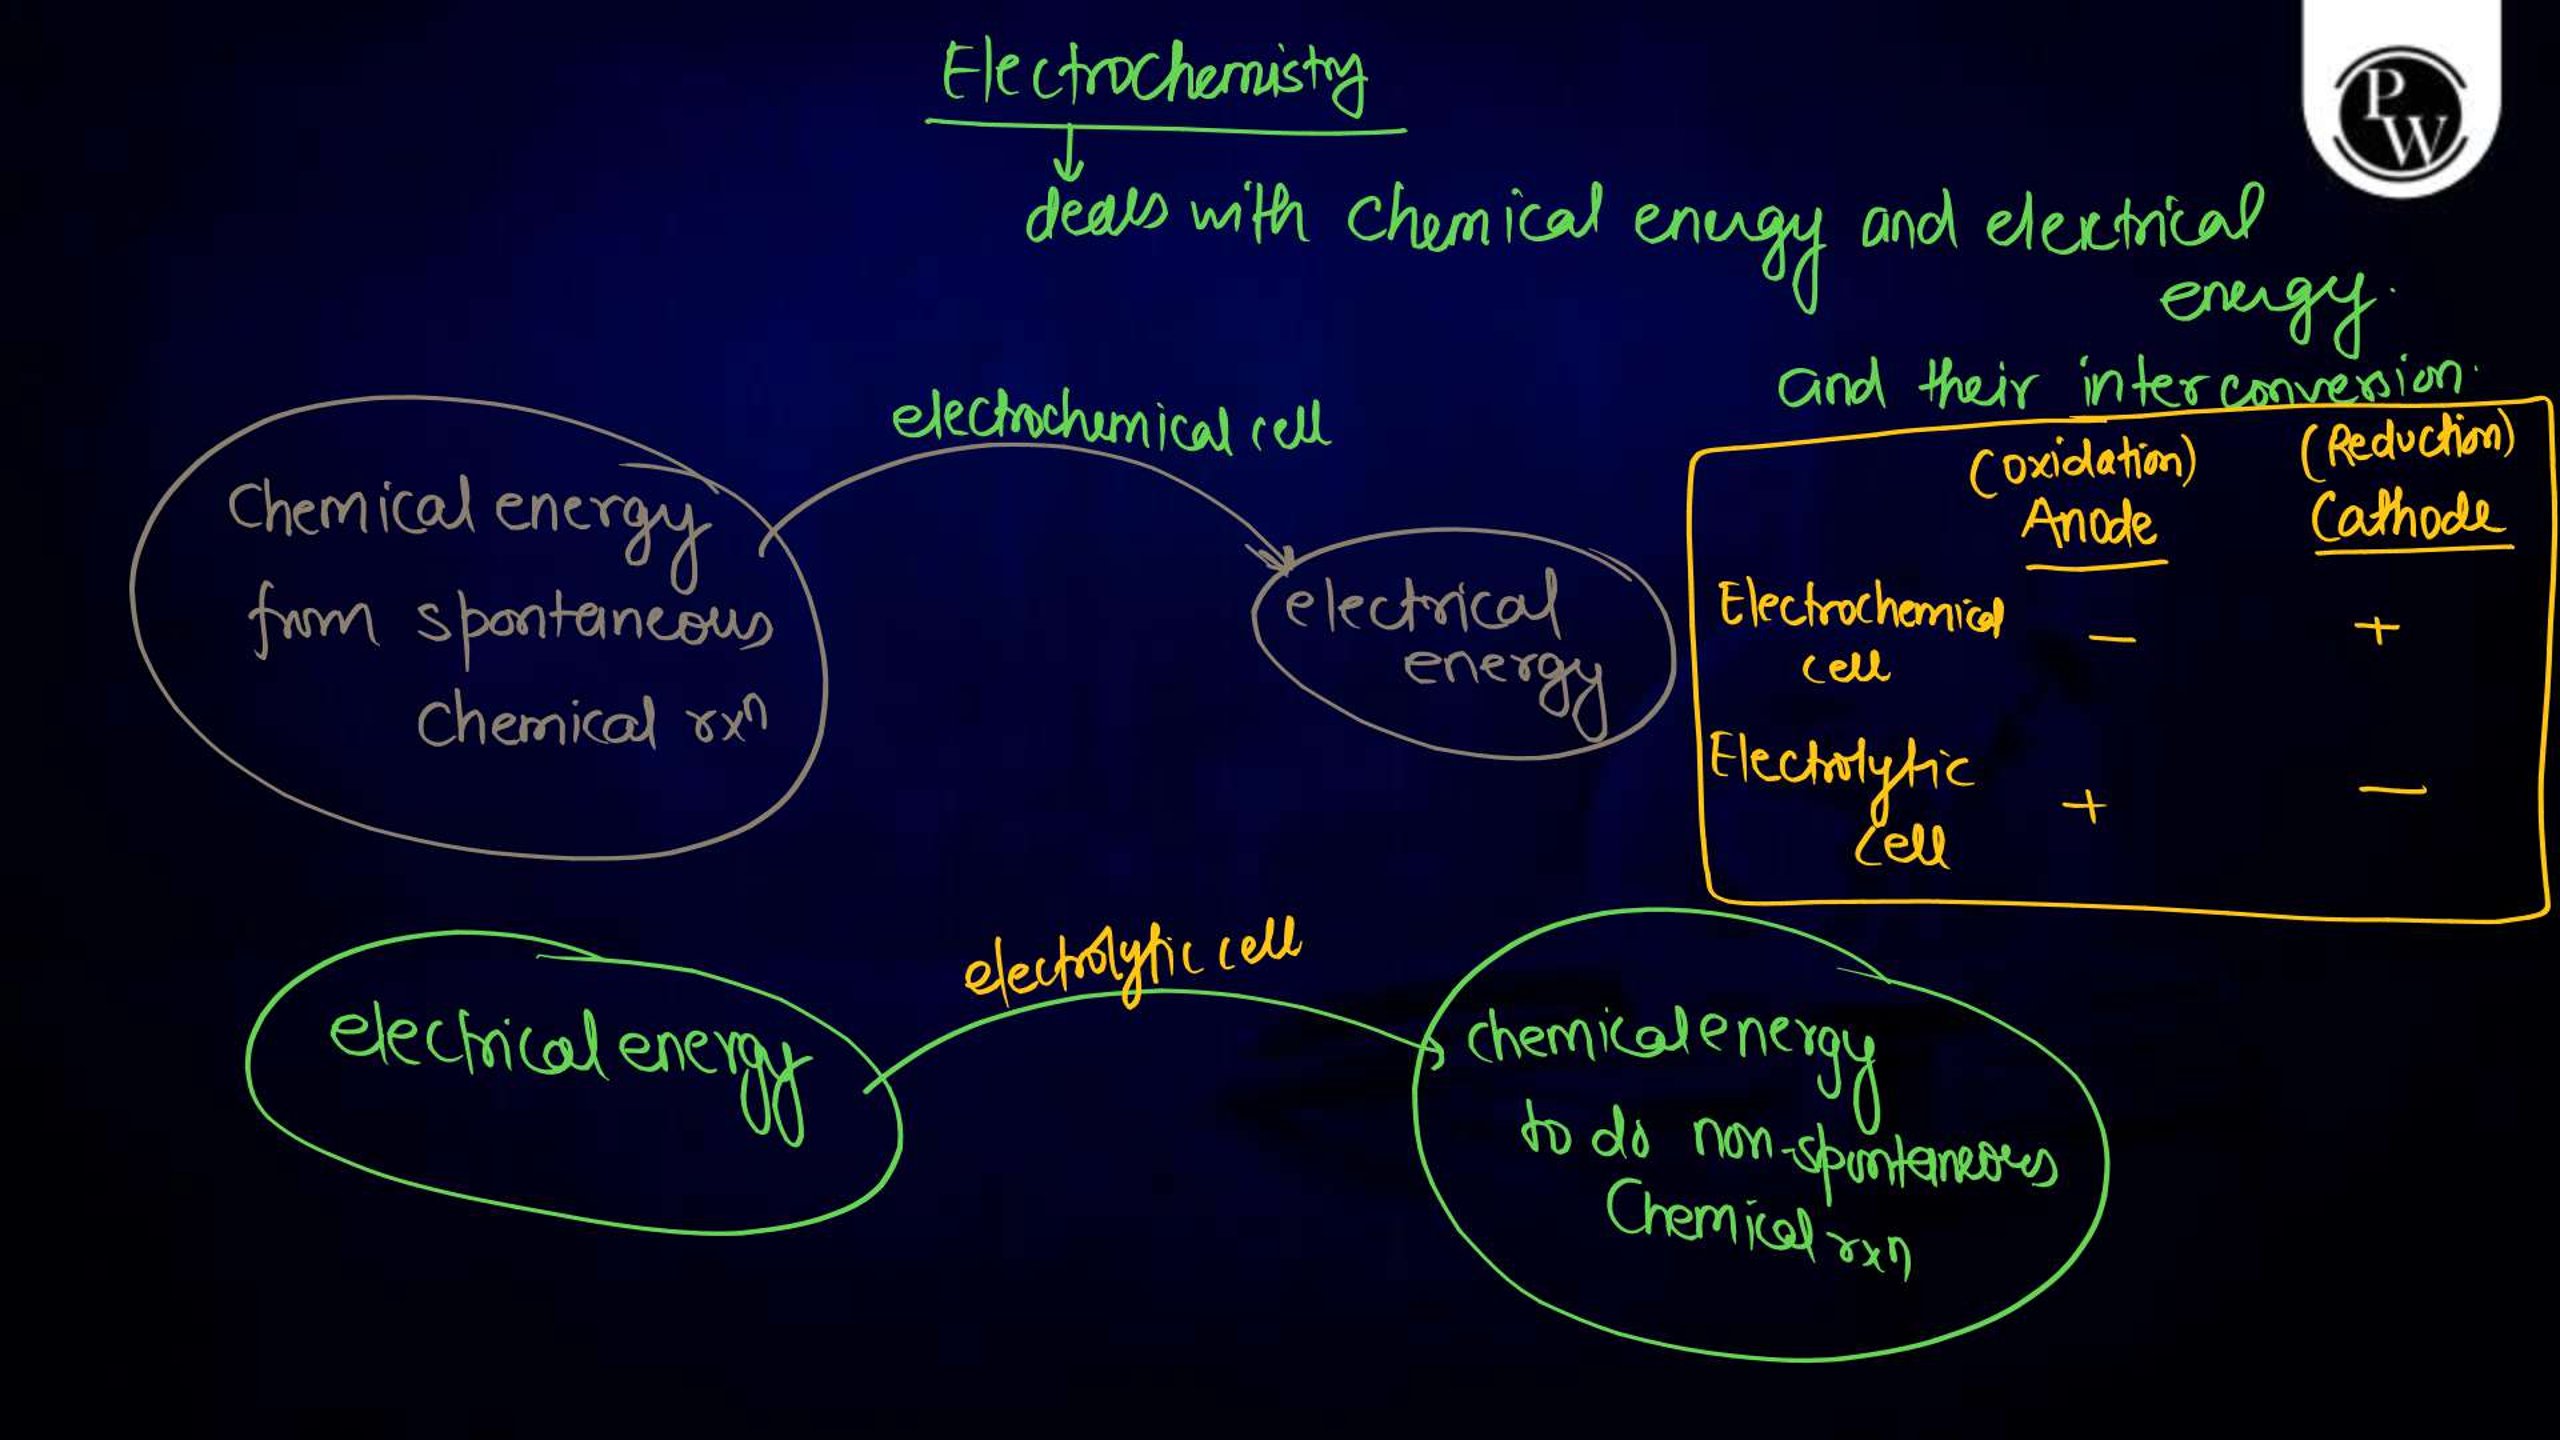 Electrochemistry
PW
deals with chemical energy and electrical
energy.
and their interconversion.
electrochemical cell
Chemical energy
from spontaneous
Chemical rxn
electrical
energy
(oxidation) (Reduction)
Anode Cathode
Electrochemical
cell - +
Electrolytic
cell + -
electrolytic cell
electrical energy
chemical energy
to do non-spontaneous
Chemical rxn